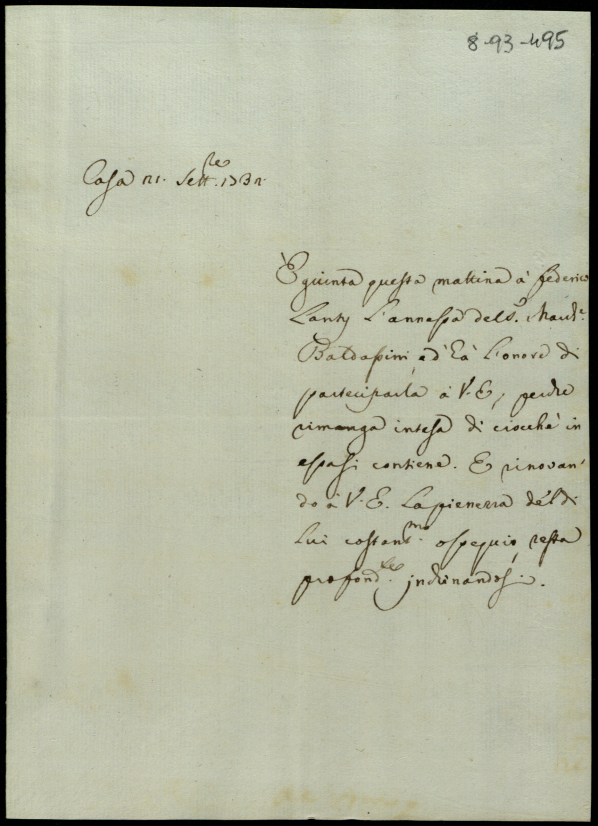 8-93-495
Casa 21. Sett.re 1732
È giunta questa mattina à Federico
Lanty l'annessa del S.r March.e
Baldassini, ed hà l'onore di
parteciparla à V.E, perche
rimanga intesa di ciocchè in
essa si contiene. E rinovan
do à V.E. La pienezza del di
Lui costant.mo ossequio, resta
profond.te inchinandosi.